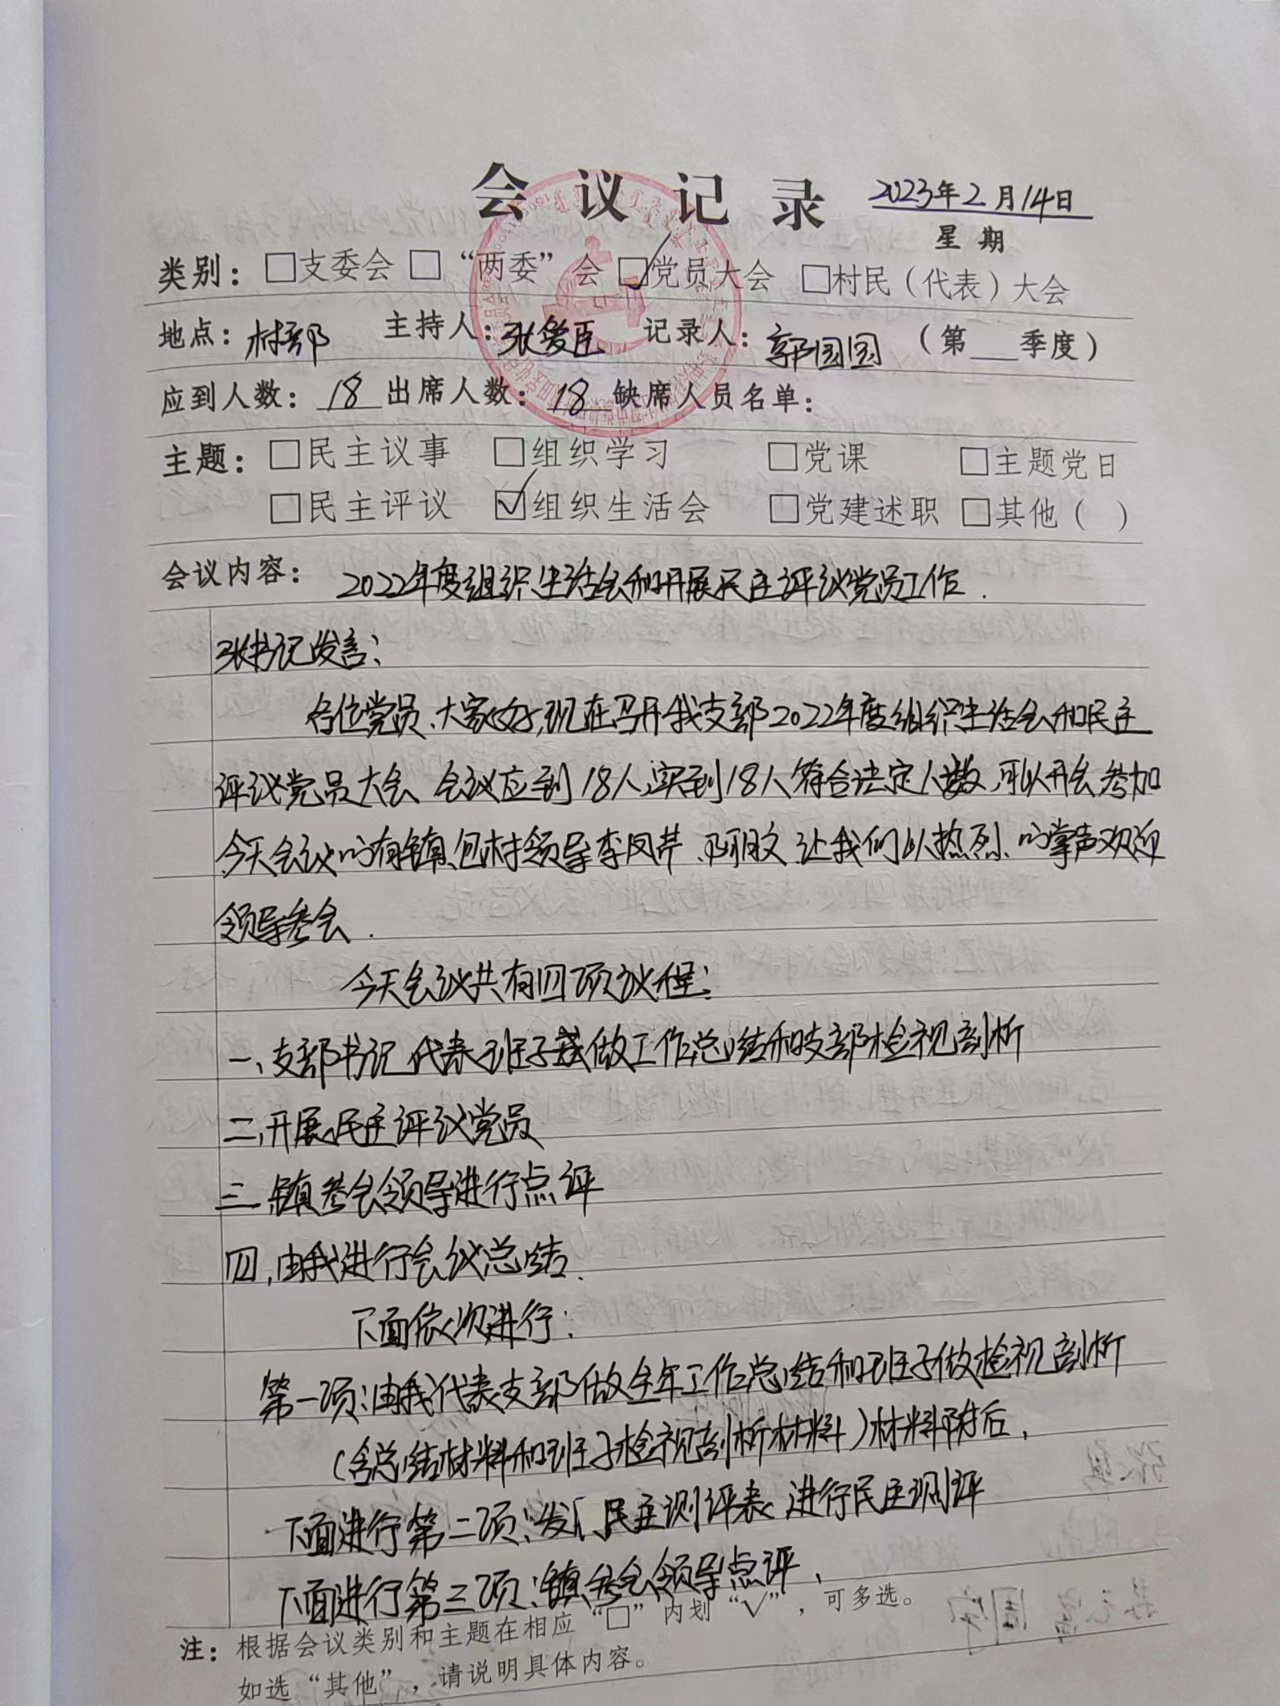 会议记录 2023年2月14日
星期
类别：□支委会 □“两委”会 ☑党员大会 □村民（代表）大会
地点：村部 主持人：张爱臣 记录人：郭国国 （第__季度）
应到人数：18 出席人数：18 缺席人员名单：
主题：□民主议事 □组织学习 □党课 □主题党日
□民主评议 ☑组织生活会 □党建述职 □其他（ ）
会议内容：2022年度组织生活会和开展民主评议党员工作.
张书记发言：
各位党员、大家好，现在召开我支部2022年度组织生活会和民主
评议党员大会 会议应到18人，实到18人符合法定人数，可以开会 参加
今天会议的有镇包村领导李凤芹、 让我们以热烈的掌声欢迎
领导参会.
今天会议共有四项议程：
一、支部书记代表班子做工作总结和支部检视剖析
二、开展民主评议党员
三、镇参会领导进行点评
四、由我进行会议总结.
下面依次进行：
第一项：由我代表支部做全年工作总结和班子做检视剖析
（含总结材料和班子检视剖析材料）材料附后，
下面进行第二项：发 民主测评表 进行民主测评
下面进行第三项：镇参会领导点评，
注：根据会议类别和主题在相应“□”内划“√”，可多选。
如选“其他”，请说明具体内容。